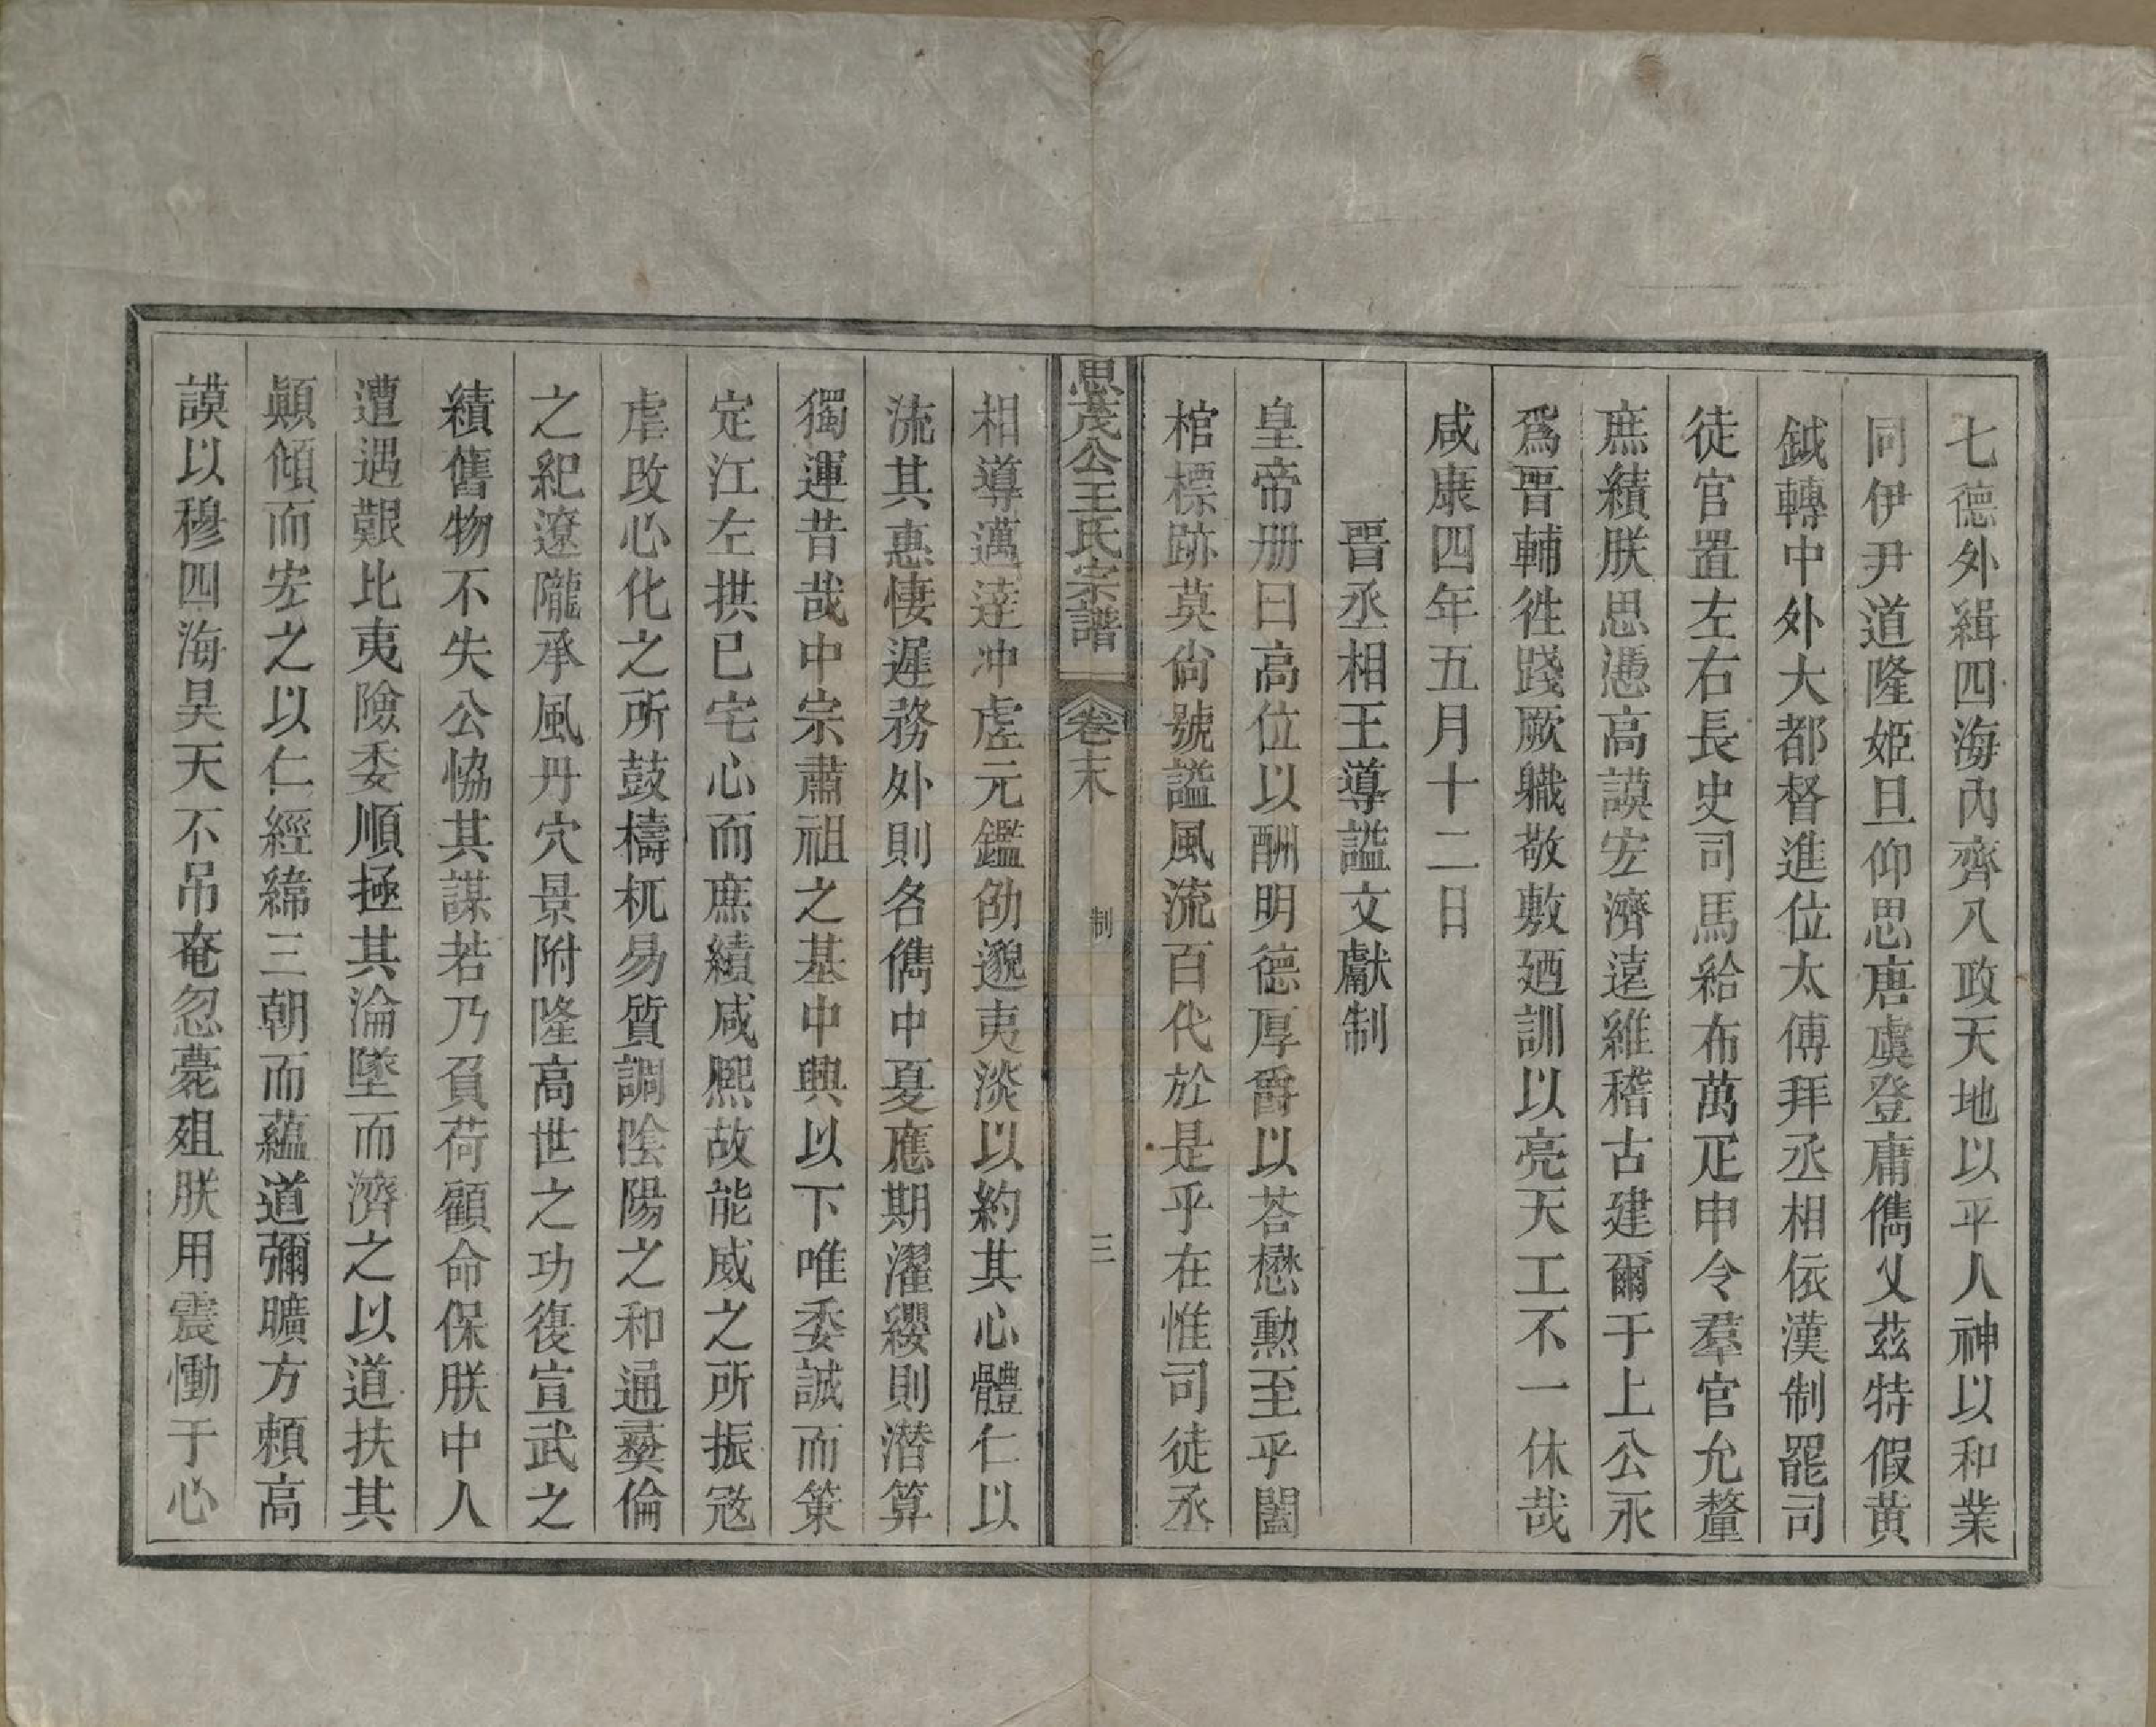 七德外緝四海內齊八政天地以平人神以和業
同伊尹道隆姬旦仰思唐虞登庸儁乂茲特假黃
鉞轉中外大都督進位太傅拜丞相依漢制罷司
徒官置左右長史司馬給布萬疋申令羣官允釐
庶績朕思憑高謨宏濟遠維稽古建爾于上公永
爲晉輔徃踐厥職敬敷廼訓以亮天工不一休哉
咸康四年五月十二日
晉丞相王導謚文獻制
皇帝册曰高位以酬明德厚爵以荅懋勲至乎闔
棺標跡莫尙號謚風流百代於是乎在惟司徒丞
思茂公王氏宗譜
卷末
制
三
相導邁達冲虛元鑑劭邈夷淡以約其心體仁以
流其惠悽遲務外則各儁中夏應期濯纓則潜算
獨運昔哉中宗肅祖之基中興以下唯委誠而策
定江左拱已宅心而庶績咸熙故能威之所振寇
虐改心化之所鼓檮杌易質調陰陽之和通彛倫
之紀遼隴承風丹穴景附隆高世之功復宣武之
績舊物不失公恊其謀若乃負荷顧命保朕中人
遭遇艱比夷險委順拯其淪墜而濟之以道扶其
顚傾而宏之以仁經緯三朝而蘊道彌曠方賴高
謨以穆四海昊天不吊奄忽薨殂朕用震慟于心